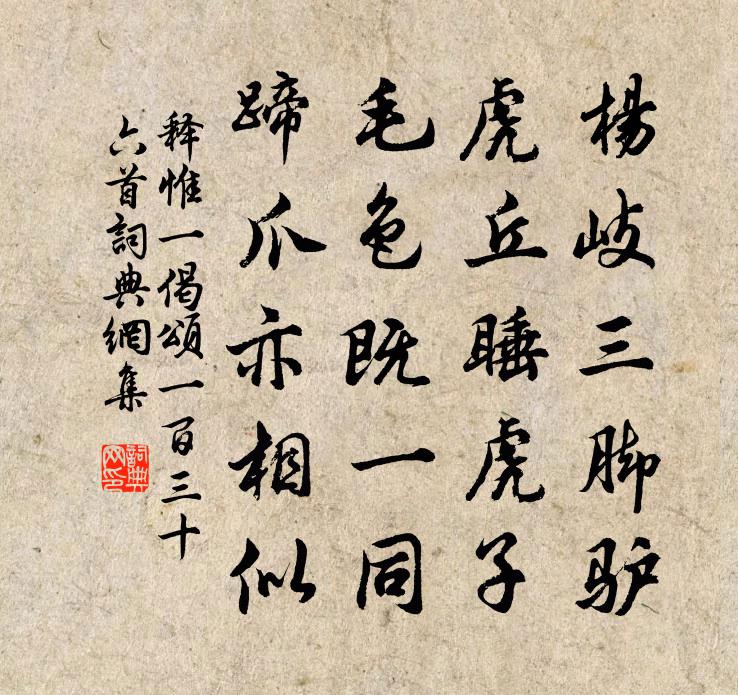 楊岐三脚驴
虎丘睡虎子
毛色既一同
蹄爪亦相似
释惟一偈頌一百三十
六首詞典網集
詞典网印